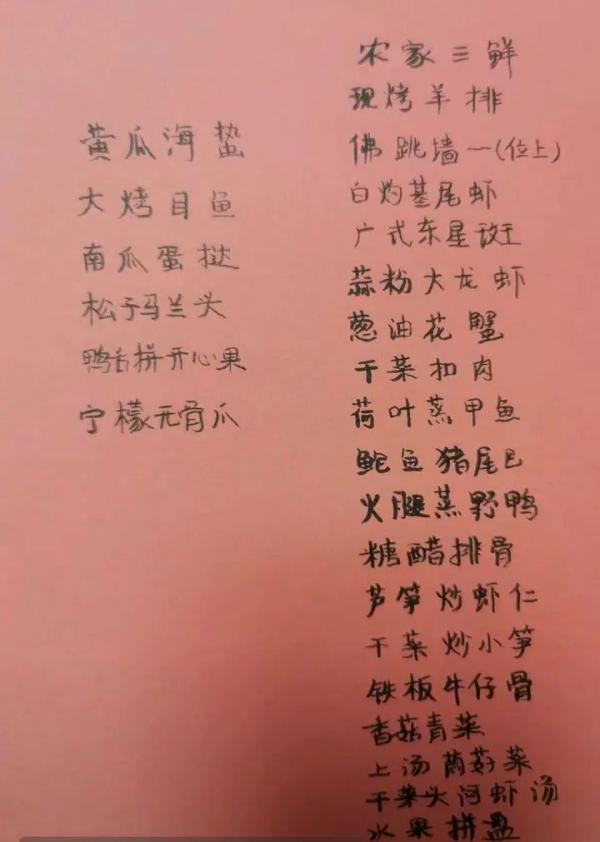 黄瓜海蜇
大烤目鱼
南瓜蛋挞
松子马兰头
鸭舌拼开心果
宁檬无骨爪
农家三鲜
现烤羊排
佛跳墙一(位上)
白灼基尾虾
广式东星斑
蒜粉大龙虾
葱油花蟹
干菜扣肉
荷叶蒸甲鱼
鮀鱼猪尾巴
火腿蒸野鸭
糖醋排骨
芦笋炒虾仁
干菜炒小笋
铁板牛仔骨
香菇青菜
上汤茼菜
干菜头河虾汤
水果拼盘